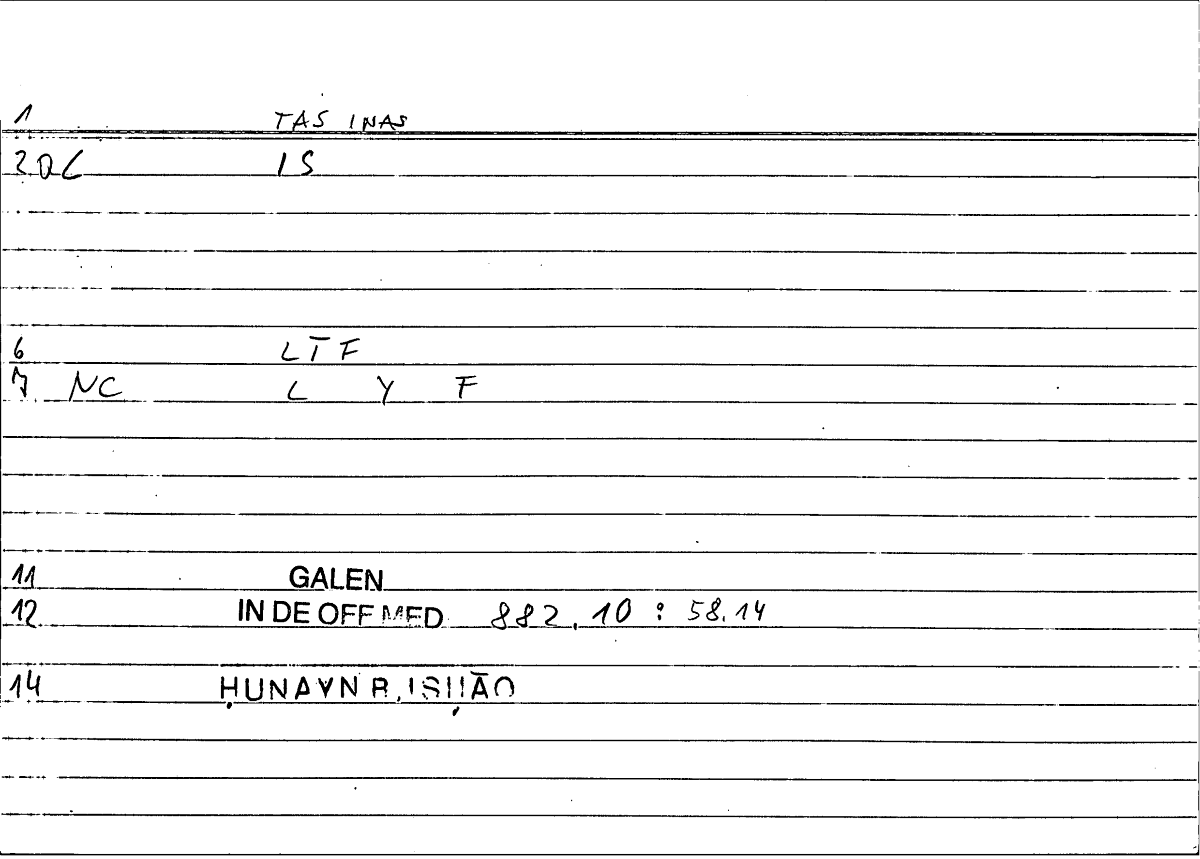 1 TAS INAS
2 QL IS
6 LTF
7 NC L Y F
11 GALEN
12 IN DE OFF MED 882.10 : 58.14
14 ḤUNAYN B. ISḤĀQ